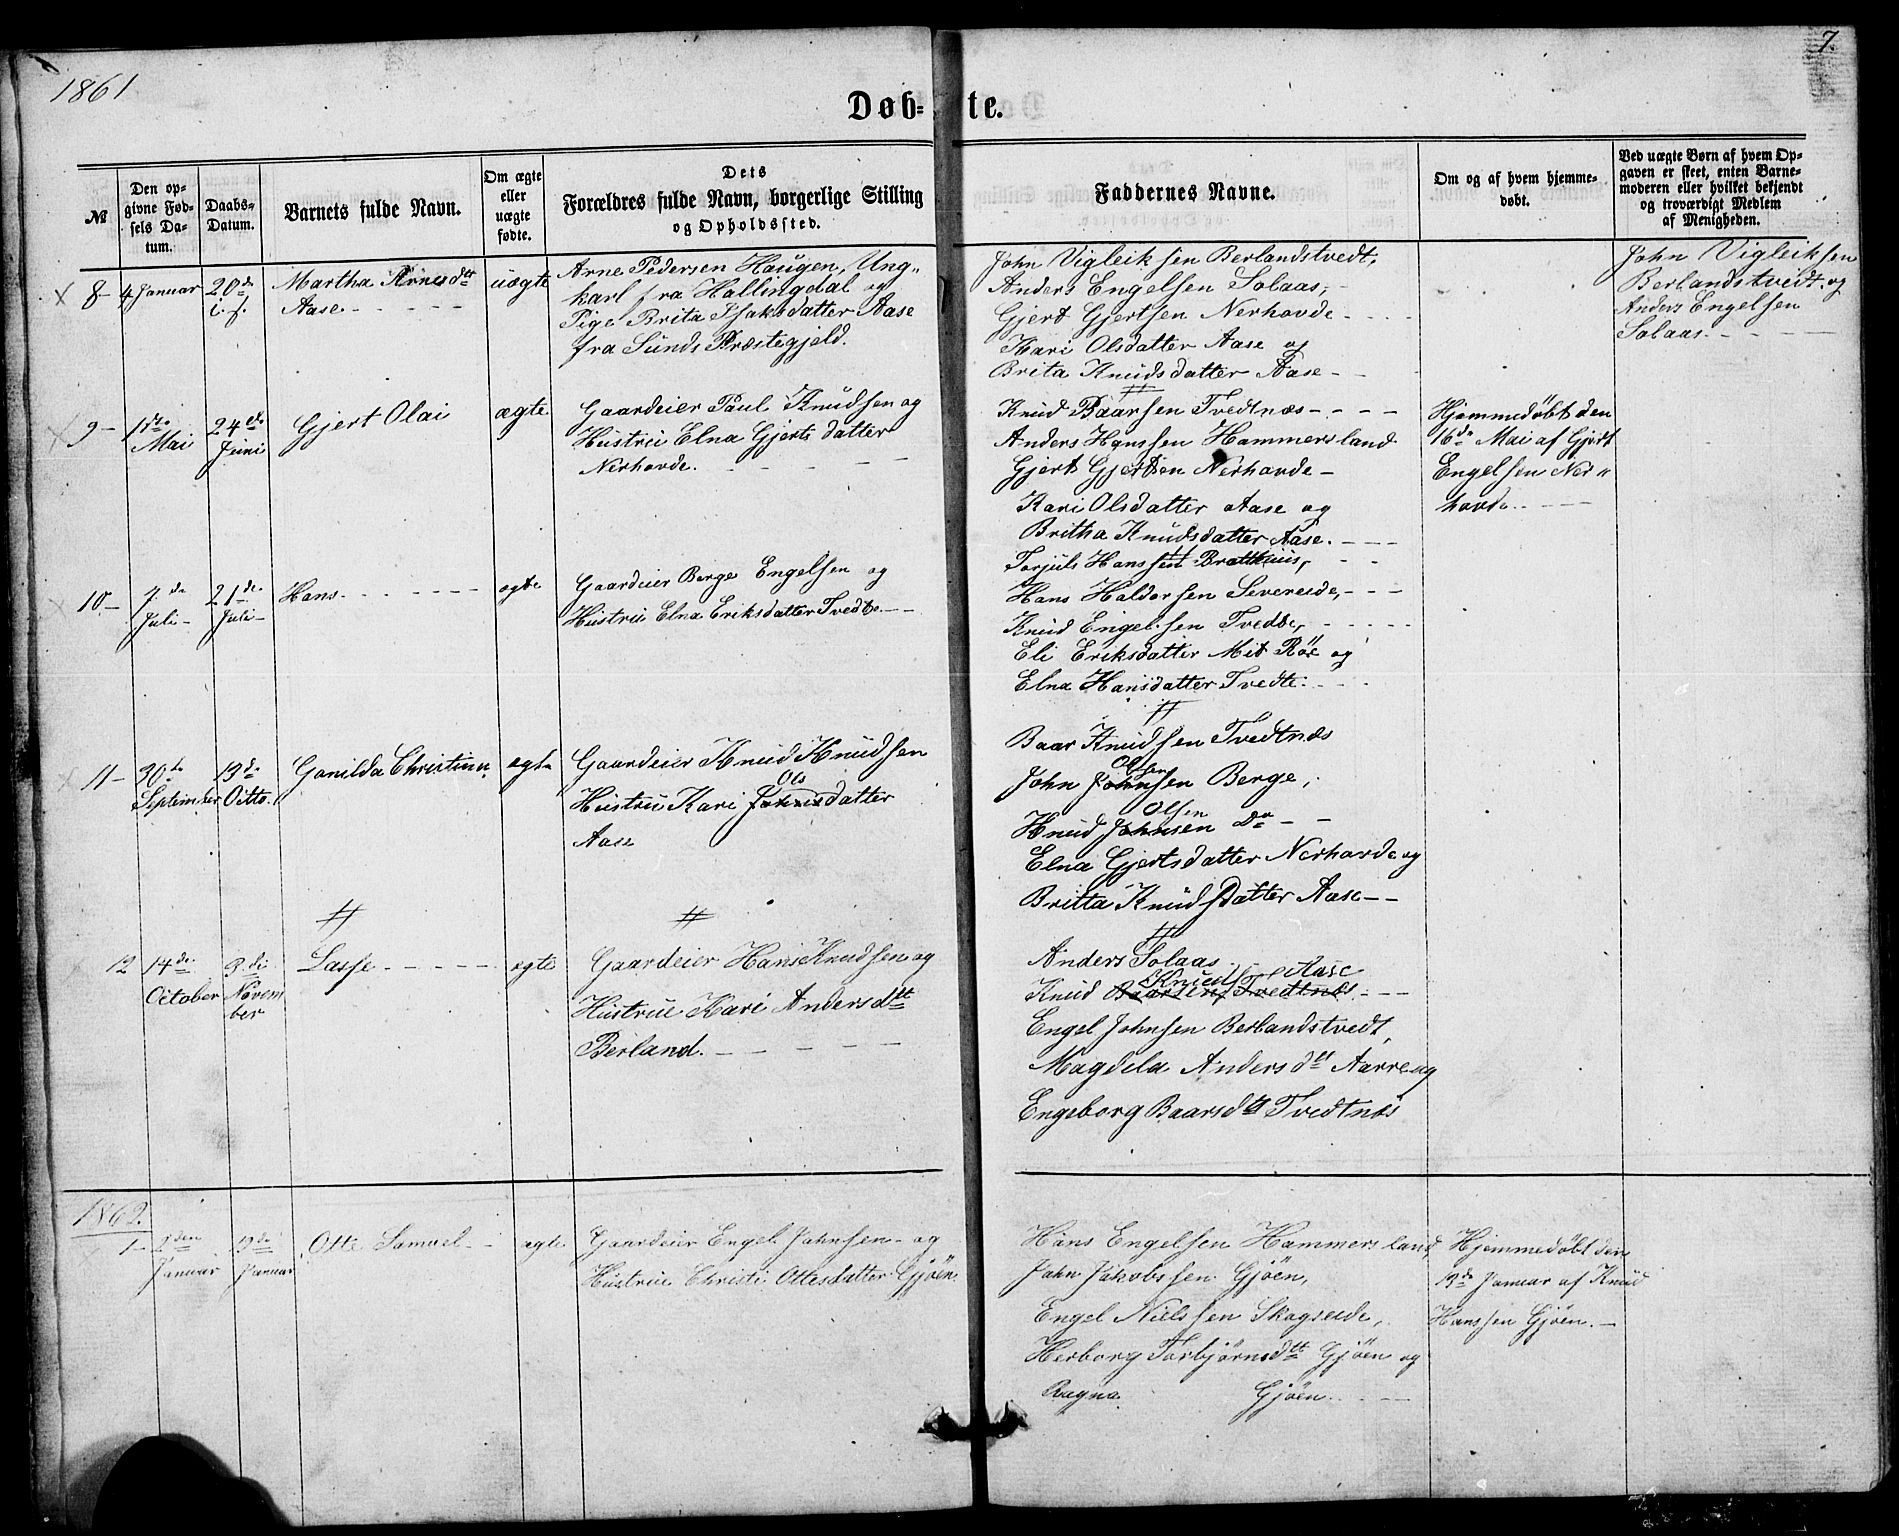 1861
7.
Døb-te.
№
Den opgivne Fødsels Datum.
Daabs-Datum.
Barnets fulde Navn.
Om ægte eller uægte fødte.
Dets Forældres fulde Navn, borgerlige Stilling og Opholdssted.
Faddernes Navne.
Om og af hvem hjemmedøbt.
Ved uægte Børn af hvem Opgaven er skeet, enten Barnemoderen eller hvilket bekjendt og troværdigt Medlem af Menigheden.
8- 4 Januar 20de i. f.
Martha Arnesdtt
Aase
uægte
Arne Pedersen Haugen, Ung-
karl fra Hallingdal og
Pige Brita Isaksdatter Aase
fra Sunds Præstegjeld.
John Vigleiksen Berlandstvedt,
Anders Engelsen Solaas,
Gjert Gjertsen Nerhovde
Kari Olsdatter Aase og
Brita Knudsdatter Aase
John Vigleiksen
Berlandstvedt og
Anders Engelsen
Solaas.
9- 1de Mai 24de Juni
Gjert Olai
ægte
Gaardeier Paul Knudsen og
Hustru Elna Gjertsdatter
Nerhovde.
Knud Baarsen Tvedtnæs
Anders Hanssen Hammersland
Gjert Gjertsen Nerhovde
Kari Olsdatter Aase og
Britha Knudsdatter Aase.
Hjemmedøbt den
16de Mai af Gjert
Engelsen Ner-
hovde.
10- 7de Juli 21de Juli
Hans.
ægte
Gaardeier Børge Engelsen og
Hustru Elna Eriksdatter Tvedte
Torjuls Hanssen Bratthuus,
Hans Haldorsen Severeide,
Knud Engelsen Tvedte,
Eli Eriksdatter Mit Röe og
Elna Hansdatter Tvedte.
11- 30te September 13de Octto.
Gonilda Christine
ægte
Gaardeier Knud Knudsen
Ols
Hustru Kari Johnsdatter
Aase
Baar Knudsen Tvedtnæs
Olsen
John Johnsen Berge,
Olsen
Knud Johnsen do
Elna Gjertsdatter Nerhovde og
Britta Knudsdatter Aase
12 14de October 3die November
Lasse
ægte
Gaardeier Hans Knudsen og
Hustrue Kari Andersdtt
Berland.
Anders Solaas
Knuds. Aase
Knud Baarsen Tvedtnæs.
Engel Johnsen Berlandstvedt,
Magdela Andersdtt Aarre og
Engeborg Baarsdtt Tvedtnæs
1862.
1- Januar 19de Januar
Otte Samuel
ægte
Gaardeier Engel Johnsen og
Hustrue Christi Ottesdatter Gjöen.
Hans Engelsen Hammersland,
John Jakobssen Gjöen,
Engel Nielssen Skogseide,
Herborg Torbjørnsdtt Gjöen og
Ragna Gjöen.
Hjemmedøbt den
19de Januar af Knud
Hanssen Gjöen.